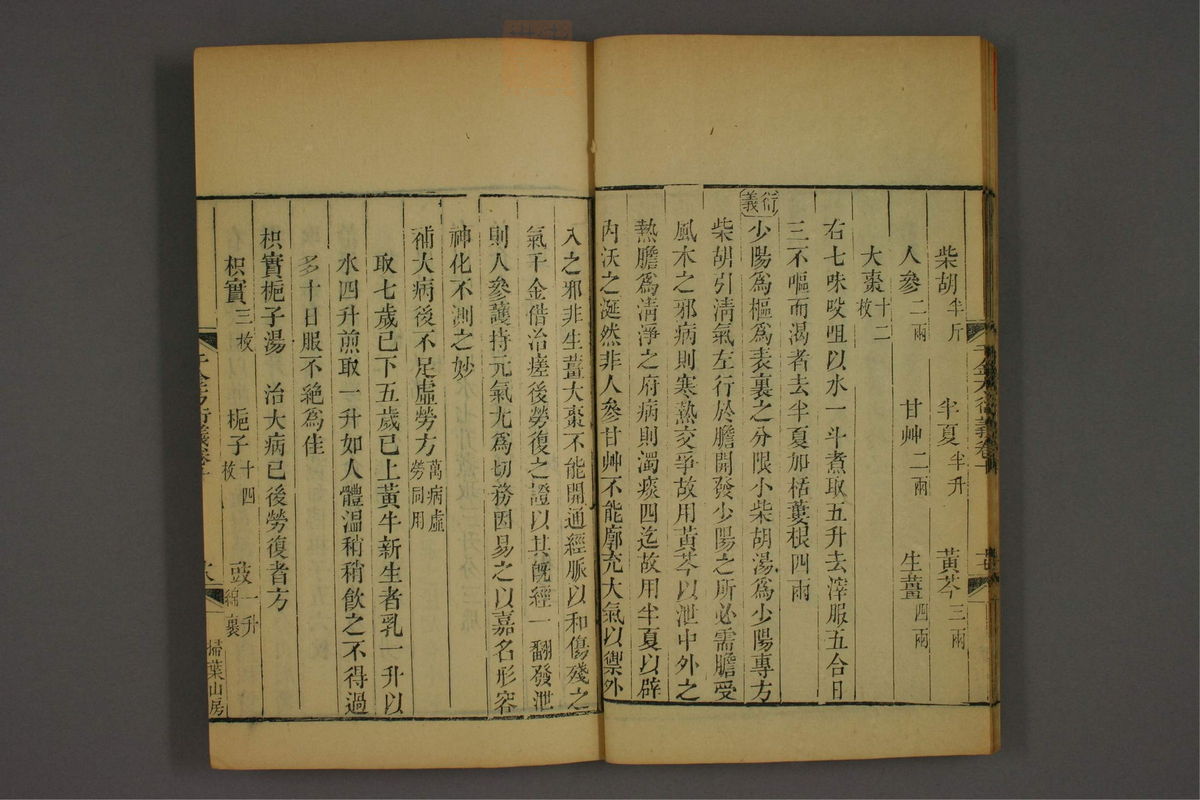 柴胡半斤 半夏半升 黃芩三兩
人參二兩 甘艸二兩 生薑四兩
大棗十二枚
右七味㕮咀以水一斗煮取五升去滓服五合日
三不嘔而渴者去半夏加栝蔞根四兩
衍義
少陽爲樞爲表裏之分限小柴胡湯爲少陽專方
柴胡引淸氣左行於膽開發少陽之所必需膽受
風木之邪病則寒熱交爭故用黃芩以泄中外之
熱膽爲淸淨之府病則濁痰四迄故用半夏以辟
內沃之涎然非人參甘艸不能廓充大氣以禦外
入之邪非生薑大棗不能開通經脈以和傷殘之
氣千金借治瘥後勞復之證以其旣經一翻發泄
則人參護持元氣尤爲切務因易之以嘉名形容
神化不測之妙
補大病後不足虛勞方萬病虛勞同用
取七歲已下五歲已上黃牛新生者乳一升以
水四升煎取一升如人體溫稍稍飮之不得過
多十日服不絕爲佳
枳實梔子湯 治大病已後勞復者方
枳實三枚 梔子十四枚 豉一升綿裹
掃葉山房